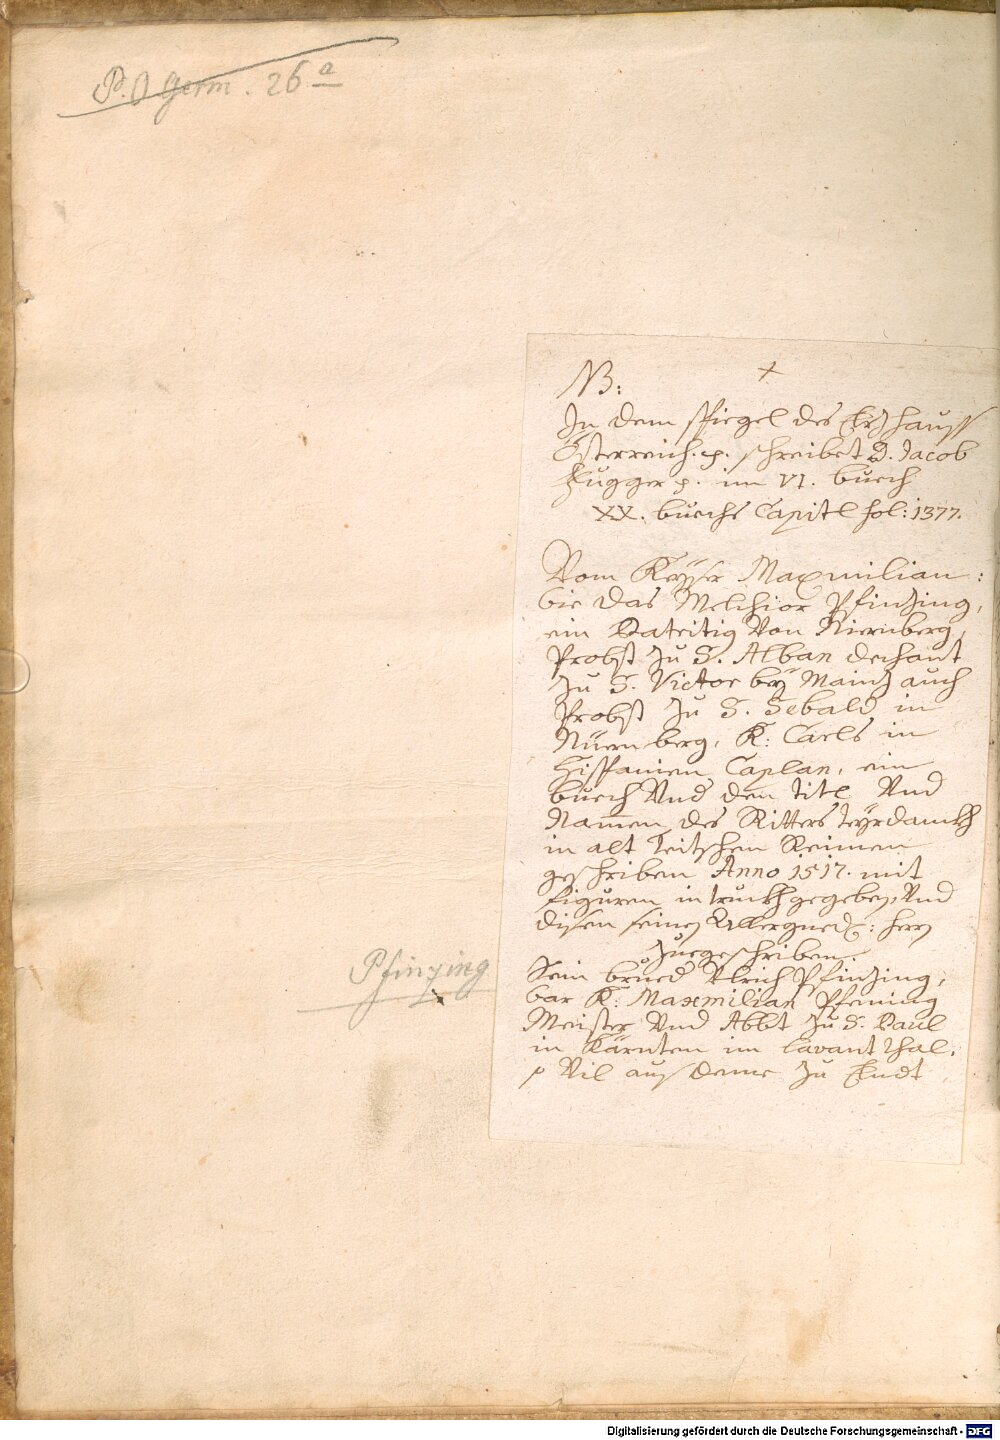 P. O. Germ. 26 a
NB:
In dem Spiegel des Ertzhauß
Österreich. p. schreibet D. Jacob
Fugger p. im VI. buech
XX. buechs Capitl fol: 1377.
Vom Keyser Maxmilian:
wie das Melchior Pfintzing,
ein Patritig Von Niernberg,
Probst zu S. Alban dechant
zu S. Victor bey Maintz auch
Probst zu S. Sebald in
Nüernberg, K: Carls in
Hispanien Caplan, ein
buech Und den titl Und
Namen des Ritters Teyrdankh
in alt Teitschen Reimen
geschriben Anno 1517. mit
figuren in truckh gegeben, Und
disen seinen Allergnedg: herrn
zuegeschriben.
Sein brued Ulrich Pfintzing,
war K: Maxmilian Pfening
Meister Und Abbt zu S. Paul
in Kärnten im Lavant thal.
p Vil auß deme zu Endt
Pfinzing
Digitalisierung gefördert durch die Deutsche Forschungsgemeinschaft - DFG